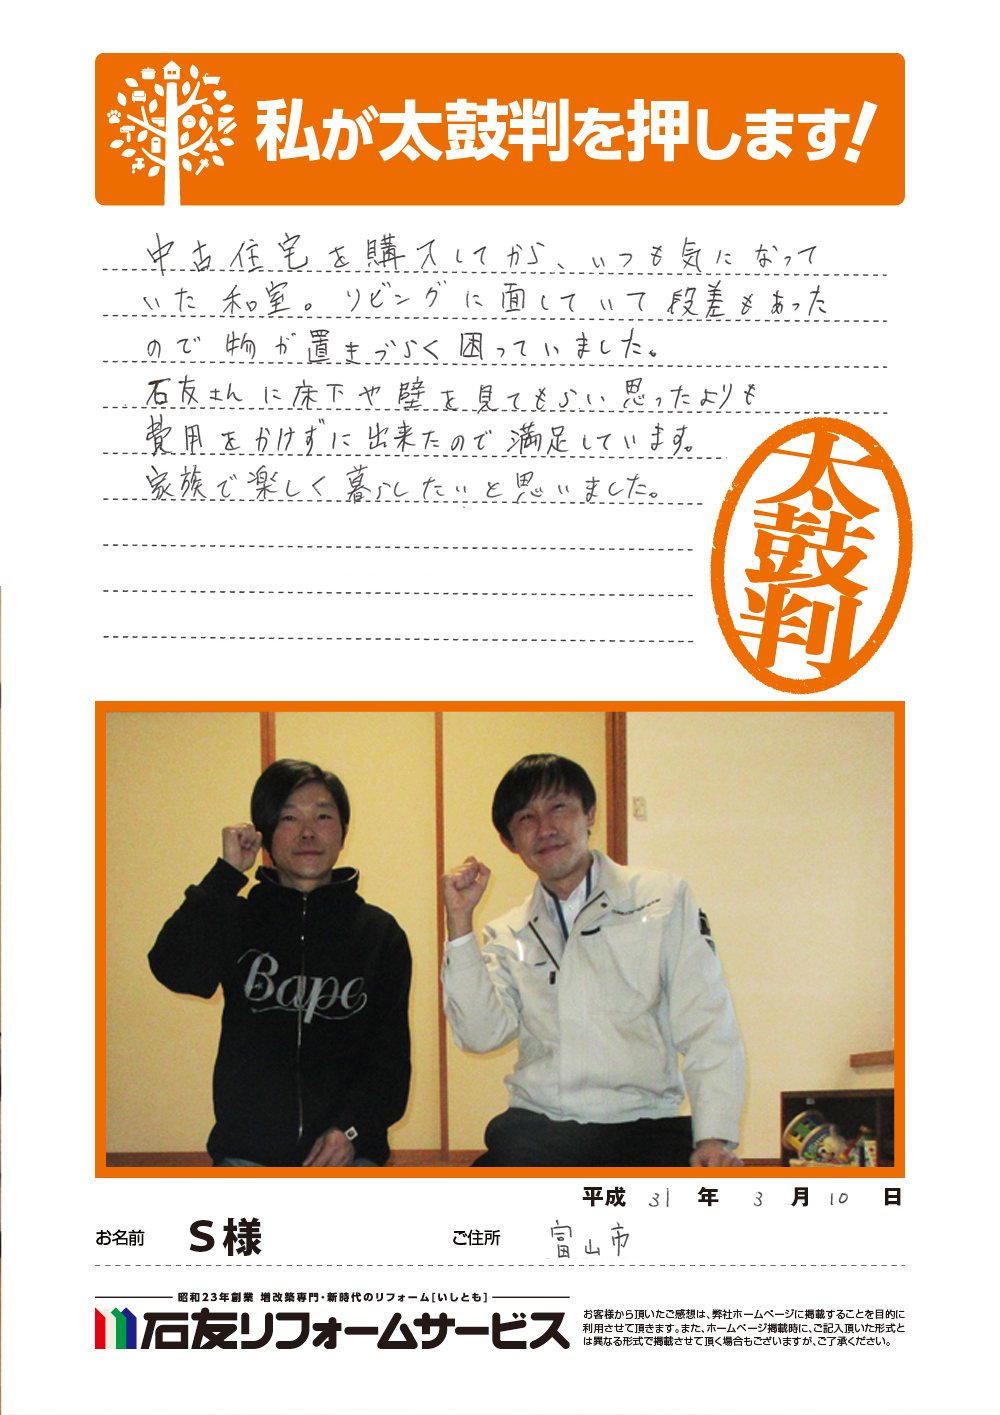 私が太鼓判を押します!
中古住宅を購入してから、いつも気になって
いた和室。リビングに面していて段差もあった
ので物が置きづらく困っていました。
石友さんに床下や壁を見てもらい思ったよりも
費用をかけずに出来たので満足しています。
家族で楽しく暮らしたいと思いました。
太鼓判
Bape
平成 31 年 3 月 10 日
お名前 S様 ご住所 富山市
昭和23年創業 増改築専門・新時代のリフォーム[いしとも]
石友リフォームサービス
お客様から頂いたご感想は、弊社ホームページに掲載することを目的に
利用させて頂きます。また、ホームページ掲載時に、ご記入頂いた形式と
は異なる形式で掲載させて頂く場合もございますが、ご了承ください。